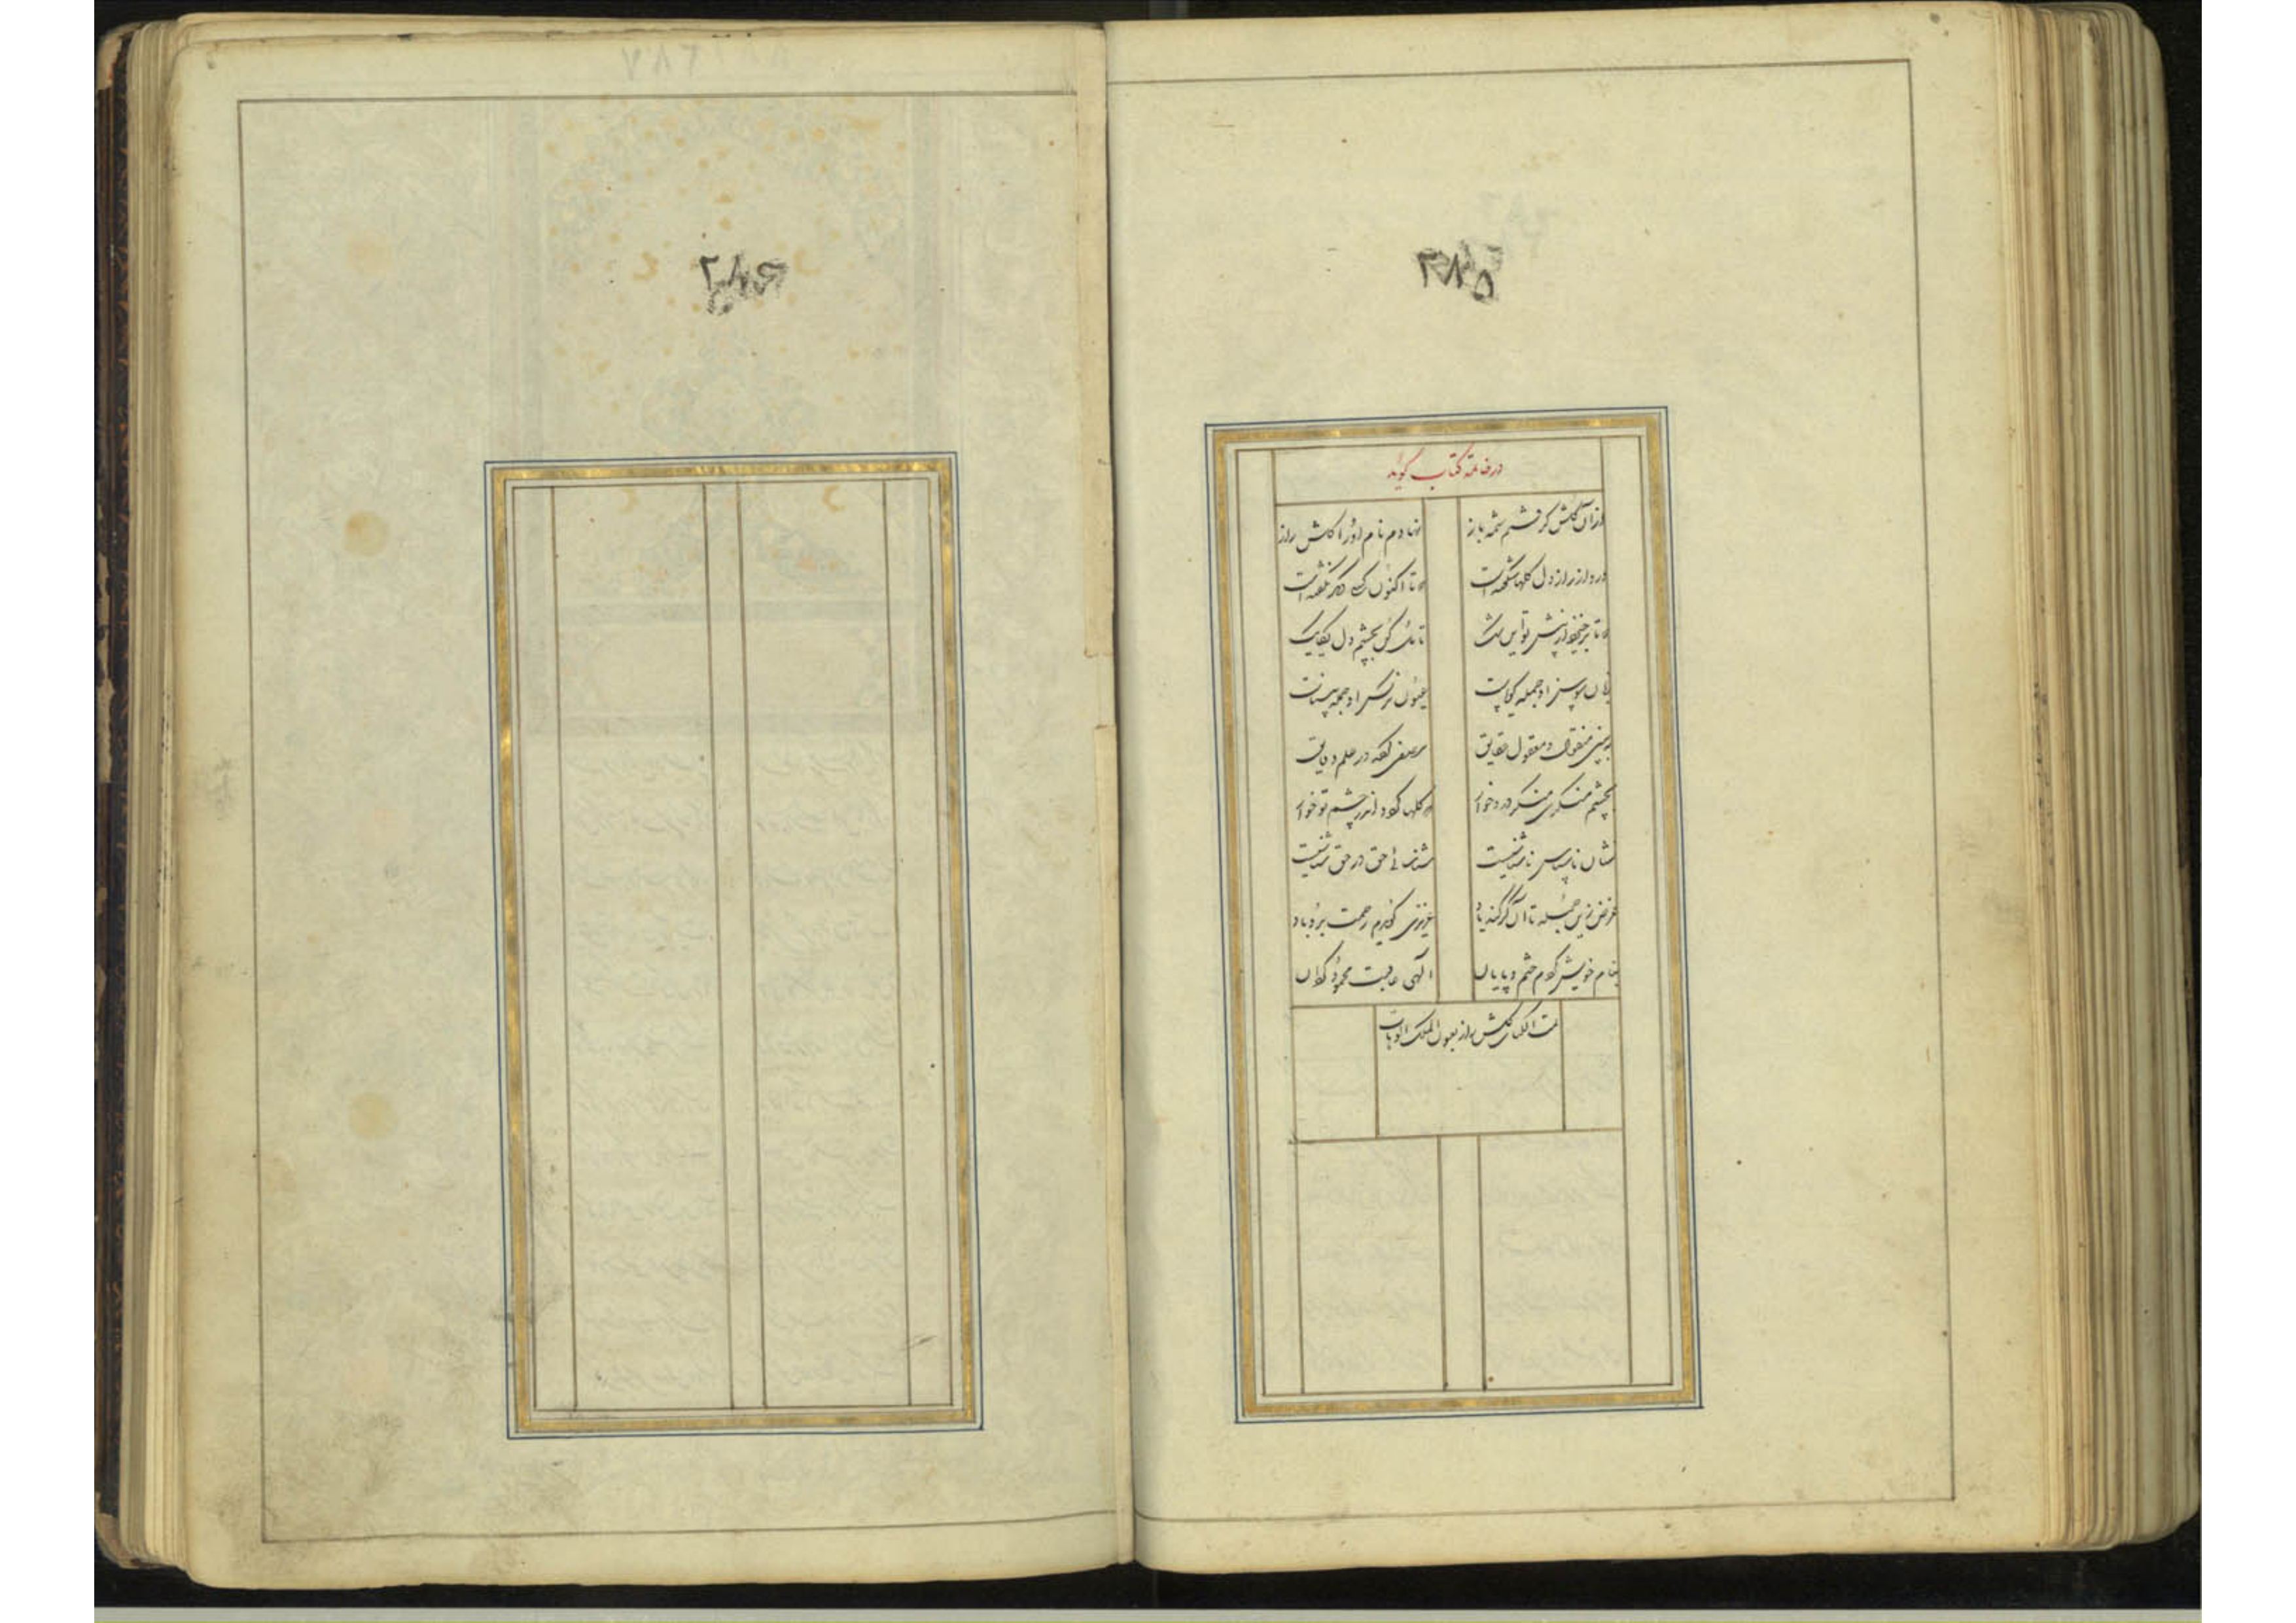 ۲۸۵
در خاتمه کتاب گوید
ازان گلشن گرفتم شمه باز نهادم نام او را گلشن راز
درو از راز دل گلها شگفته است که تا اکنون کسی دیگر نگفته است
تا یک گل بچشم دل یکایک
زبان سوسن او جمله گویاست عیون نرگس او جمله بیناست
ببین منقول و معقول حقایق مصفی کرده در علم دقایق
بچشم منکری منگر درو خوار که گلها گردد اندر چشم تو خار
نشان ناسپاسی ناشناسیست شناسائی حق در حق شناسیست
غرض زین جمله تا آن گر کند یاد عزیزی گویدم رحمت برو باد
بنام خویش کردم ختم و پایان الهی عاقبت محمود گردان
تمت الکتاب گلشن راز بعون الملک الوهاب
۲۸۶